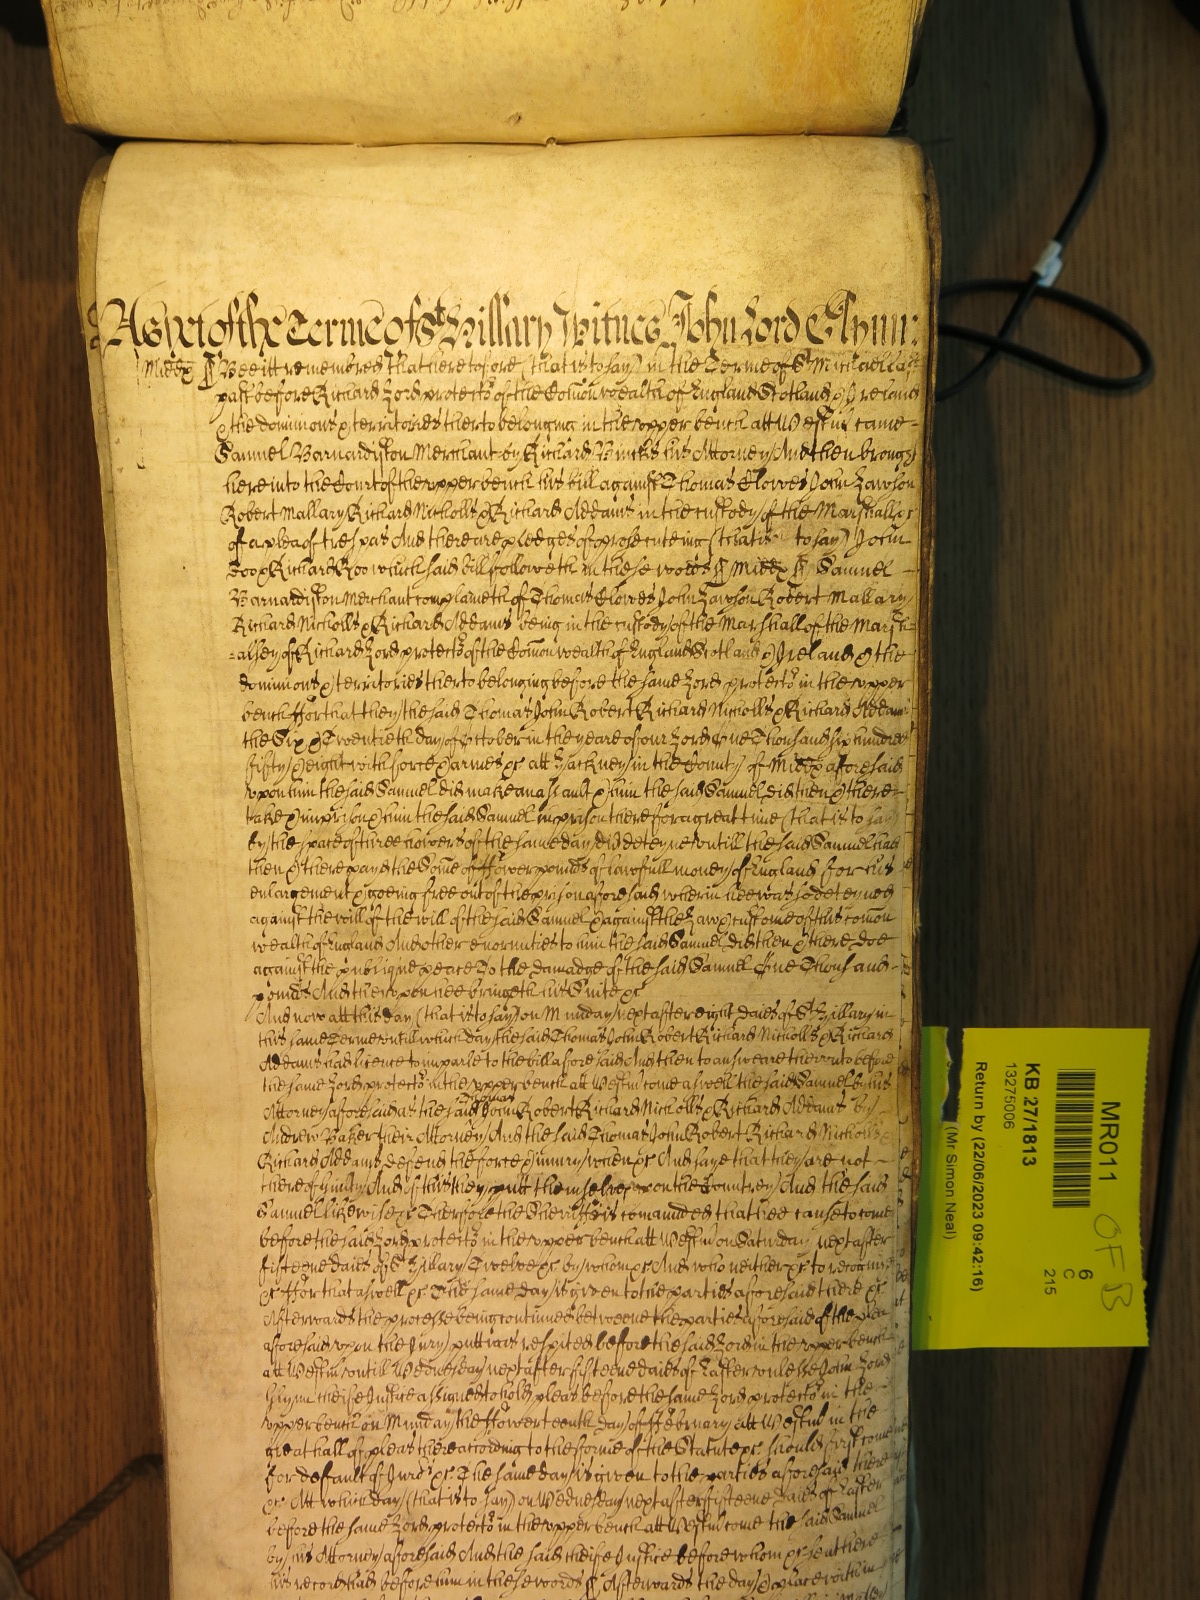 As yet of the Terme of St Hillary Witnes John Lord Glynn:
Middx ss Bee itt remembred that heretofore (that is to say) in the Terme of St Michaell last
past before Richard Lord protector of the Comonwealth of England Scotland & Ireland
& the dominions & territories therto belonging in the upper bench att Westm came
Samuel Barnardiston Merchant by Richard Bincks his Attorney And then brought
here into the Court of the upper bench his bill against Thomas Clowes John Lawson
Robert Mallary Richard Nicholls & Richard Addams in the custody of the Marshall &c
of a plea of trespas And there are pledges of prosecuteing (that is to say) John
Doo & Richard Roo which said bill followeth in these words ss Middx ss Samuel
Barnardiston Merchant complaineth of Thomas Clowes John Lawson Robert Mallary
Richard Nicholls & Richard Addams being in the custody of the Marshall of the Marsh=
=alsey of Richard Lord protector of the Comonwealth of England Scotland & Ireland & the
dominions & territories therto belonging before the same Lord protector in the upper
bench ffor that they the said Thomas John Robert Richard Nicholls & Richard Addams
the Six & Twentieth day of October in the yeare of our Lord One Thousand six hundred
fifty & eight with force & armes &c att Hackney in the County of Middx aforesaid
upon him the said Samuel did make an assault & him the said Samuel did then & there
take & imprison & him the said Samuel in prison there for a great time (that is to say)
by the space of three howers of the same day did deteyne untill the said Samuel had
then & there payd the Some of ffower pounds of lawfull money of England for his
enlargement & goeing free out of the prison aforesaid wherin hee was so deteyned
against the will of the will of the said Samuel & against the Law & custome of this comon
wealth of England And other enormities to him the said Samuel did then & there doe
against the publique peace To the damadge of the said Samuel One Thousand
pounds And therupon hee bringeth his Suite &c
And now att this day (that is to say) on Munday next after eight daies of St Hillary in
this same Terme untill which day the said Thomas John Robert Richard Nicholls & Richard
Addams had licence to imparle to the bill aforesaid And then to answeare therunto before
the same Lord protector in the upper bench att Westm come aswell the said Samuel by his
Attorney aforesaid as the said Thomas John Robert Richard Nicholls & Richard Addams by
Andrew Baker their Attorney And the said Thomas John Robert Richard Nicholls &
Richard Addams defend the force & iniury when &c And saye that they are not
thereof Guilty And of this they putt themselves upon the Countrey And the said
Samuel likewise &c Therfore the Sherriffe is comaunded that hee cause to come
before the said Lord protector in the upper bench att Westm on Saturday next after
fifteene daies of St Hillary Twelve &c by whom &c And who neither &c to recognise
&c ffor that aswell &c The same day is given to the parties aforesaid there &c
Afterwards the processe being continued betweene the parties aforesaid of the plea
aforesaid upon the Jury putt was respited before the said Lord in the upper bench
att Westm untill Wednesday next after fifteene daies of Easter unlesse John Lord
Glynn Cheife Justice assigned to hold pleas before the same Lord protector in the
upper bench on Munday the ffowerteenth day of ffebruary att Westm in the
great hall of pleas there according to the forme of the Statute &c should first come
for default of Jurors &c The same day is given to the parties aforesaid there
&c Att which day (that is to say) on Wednesday next after fifteene daies of Easter
before the same Lord protector in the upper bench att Westm come the said Samuel
by his Attorney aforesaid And the said cheife Justice before whom &c sent here
his record had before him in these words ss Afterwards the day & place within
MR011
KB 27/1813
13275006
Return by (22/06/2023 09:42:16)
(Mr Simon Neal)
6
C
215
OFB